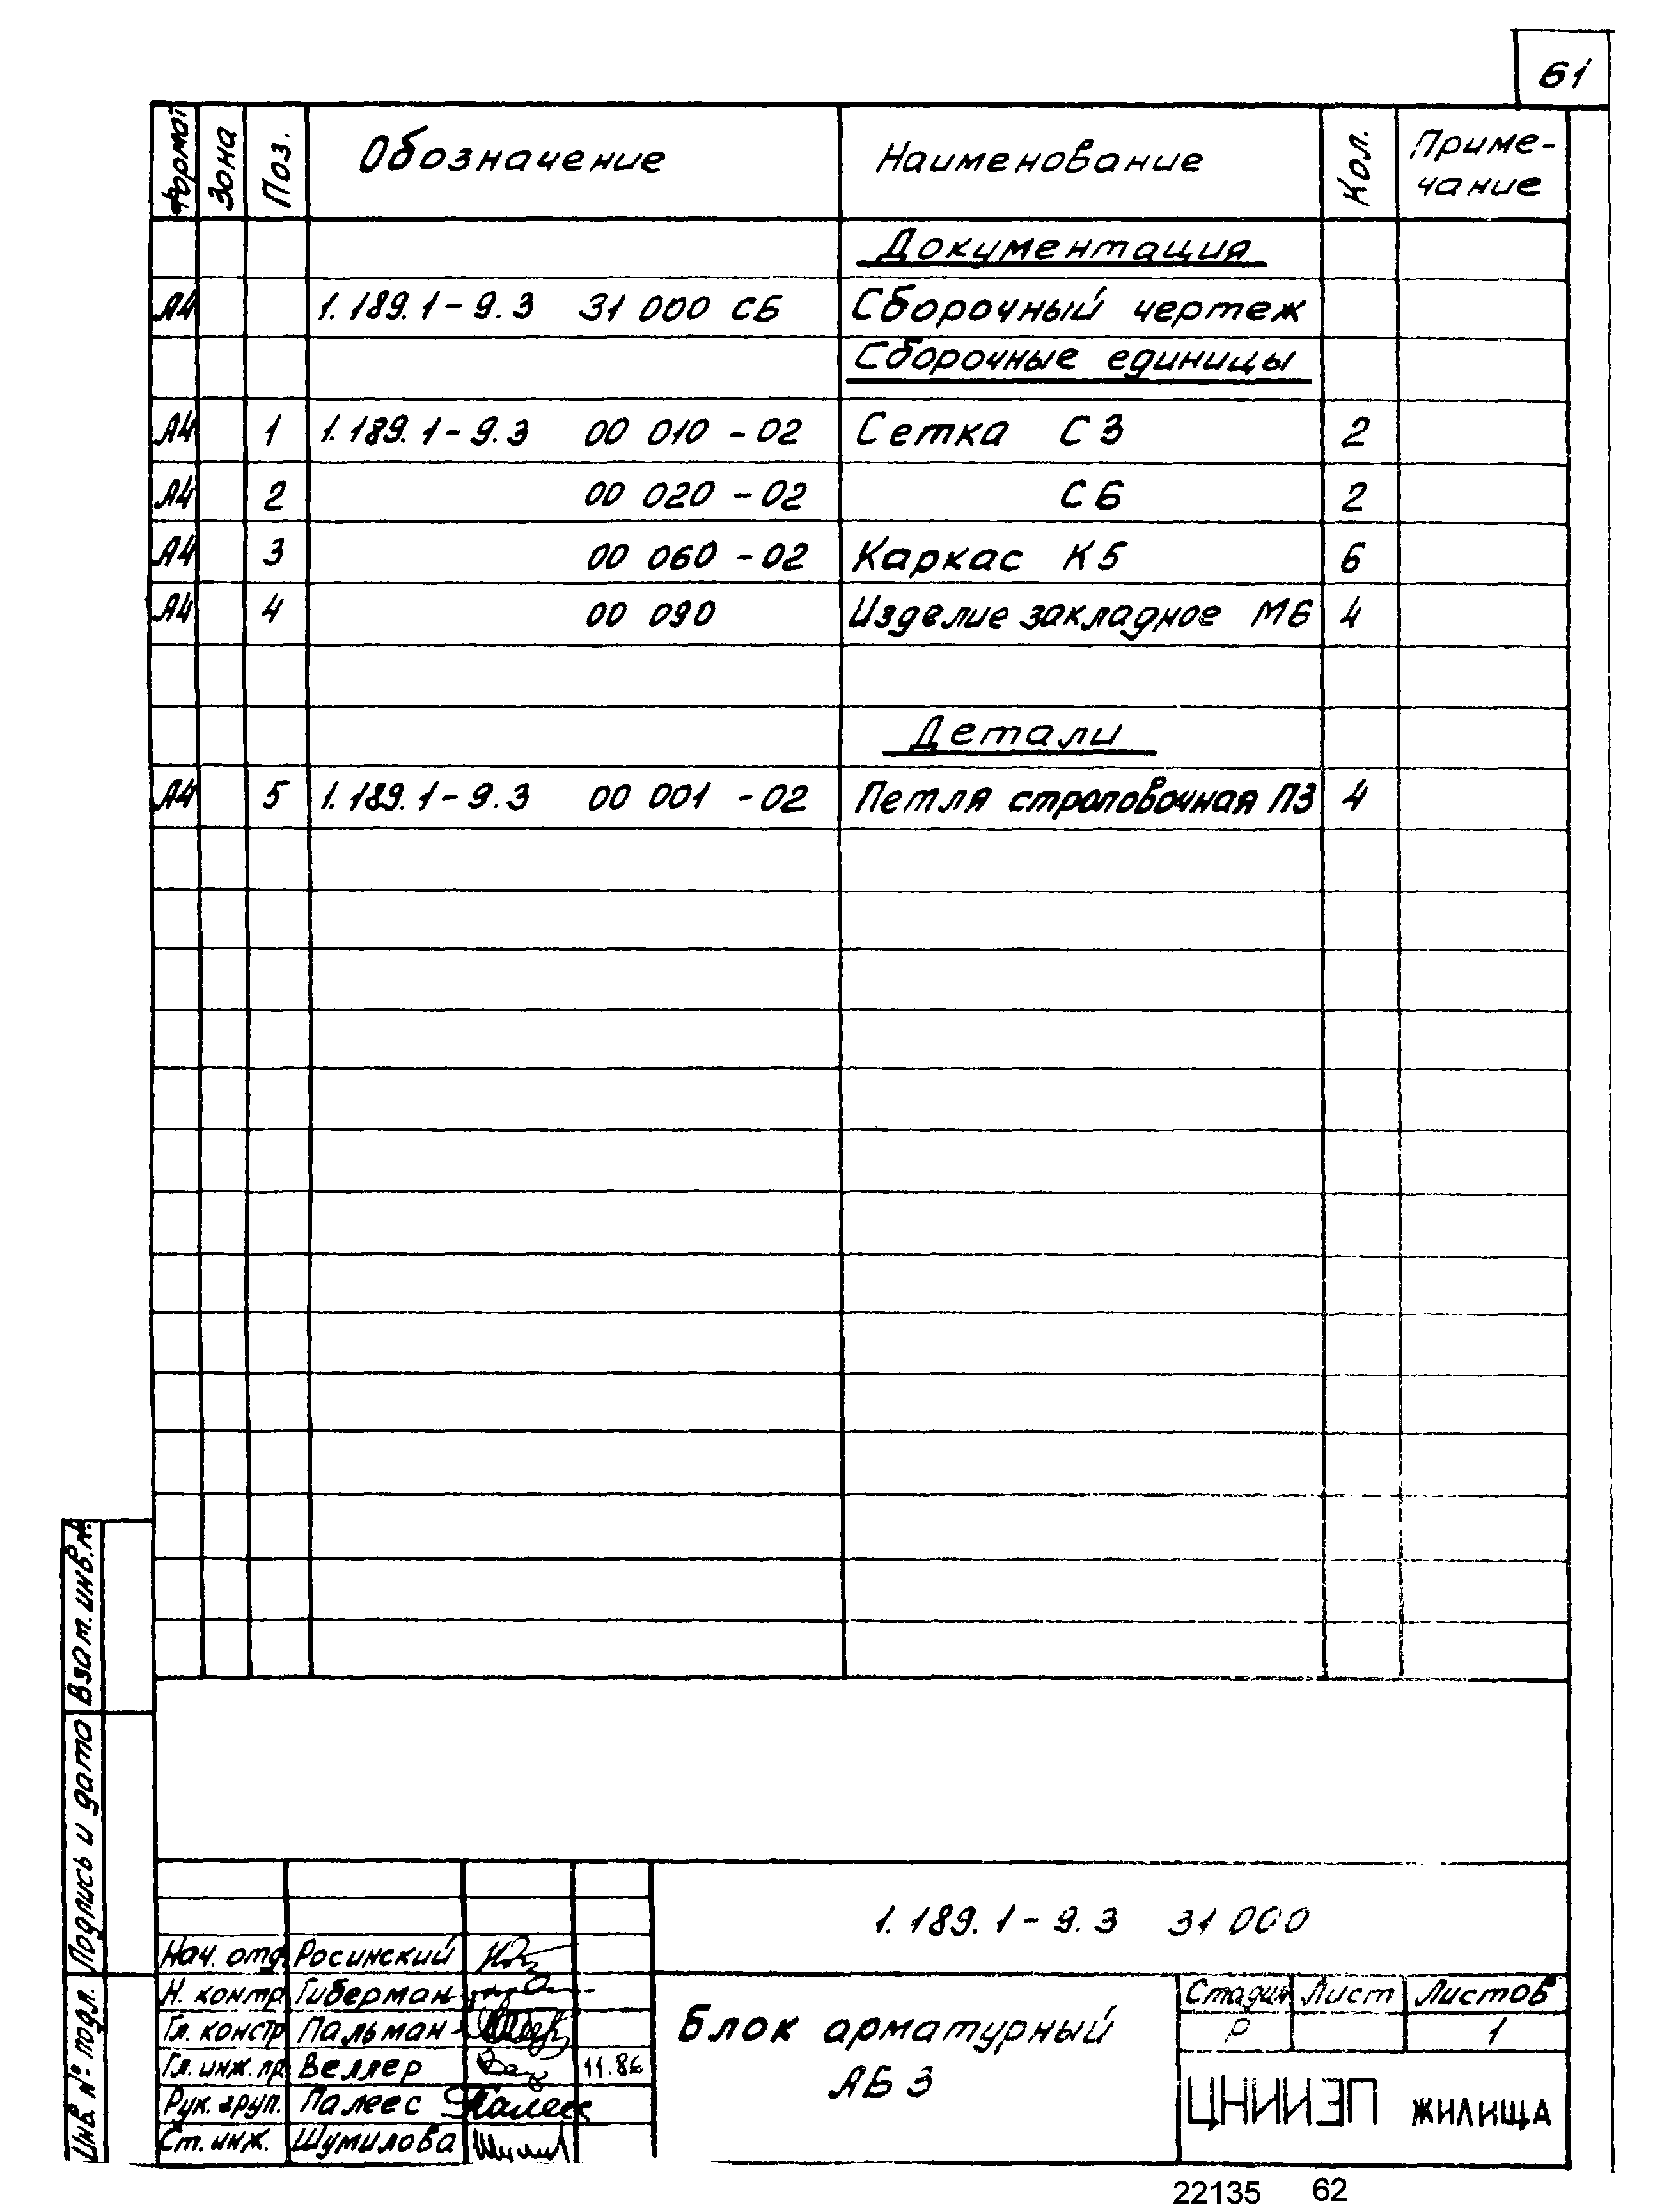 61
Формат Зона Поз. Обозначение Наименование Кол. Приме-
чание
Документация
А4 1.189.1-9.3 31 000 СБ Сборочный чертеж
Сборочные единицы
А4 1 1.189.1-9.3 00 010 -02 Сетка С3 2
А4 2 00 020 -02 С6 2
А4 3 00 060 -02 Каркас К5 6
А4 4 00 090 Изделие закладное М6 4
Детали
А4 5 1.189.1-9.3 00 001 -02 Петля строповочная П3 4
Взам. инв. №
Подпись и дата
Инв. № подл.
1.189.1-9.3 31 000
Нач. отд. Росинский
Н. контр. Гиберман
Гл. констр. Пальман
Гл. инж. пр. Веллер 11.86
Рук. груп. Палеес
Ст. инж. Шумилова
Блок арматурный
АБ 3
Стадия Лист Листов
Р 1
ЦНИИЭП жилища
22135 62